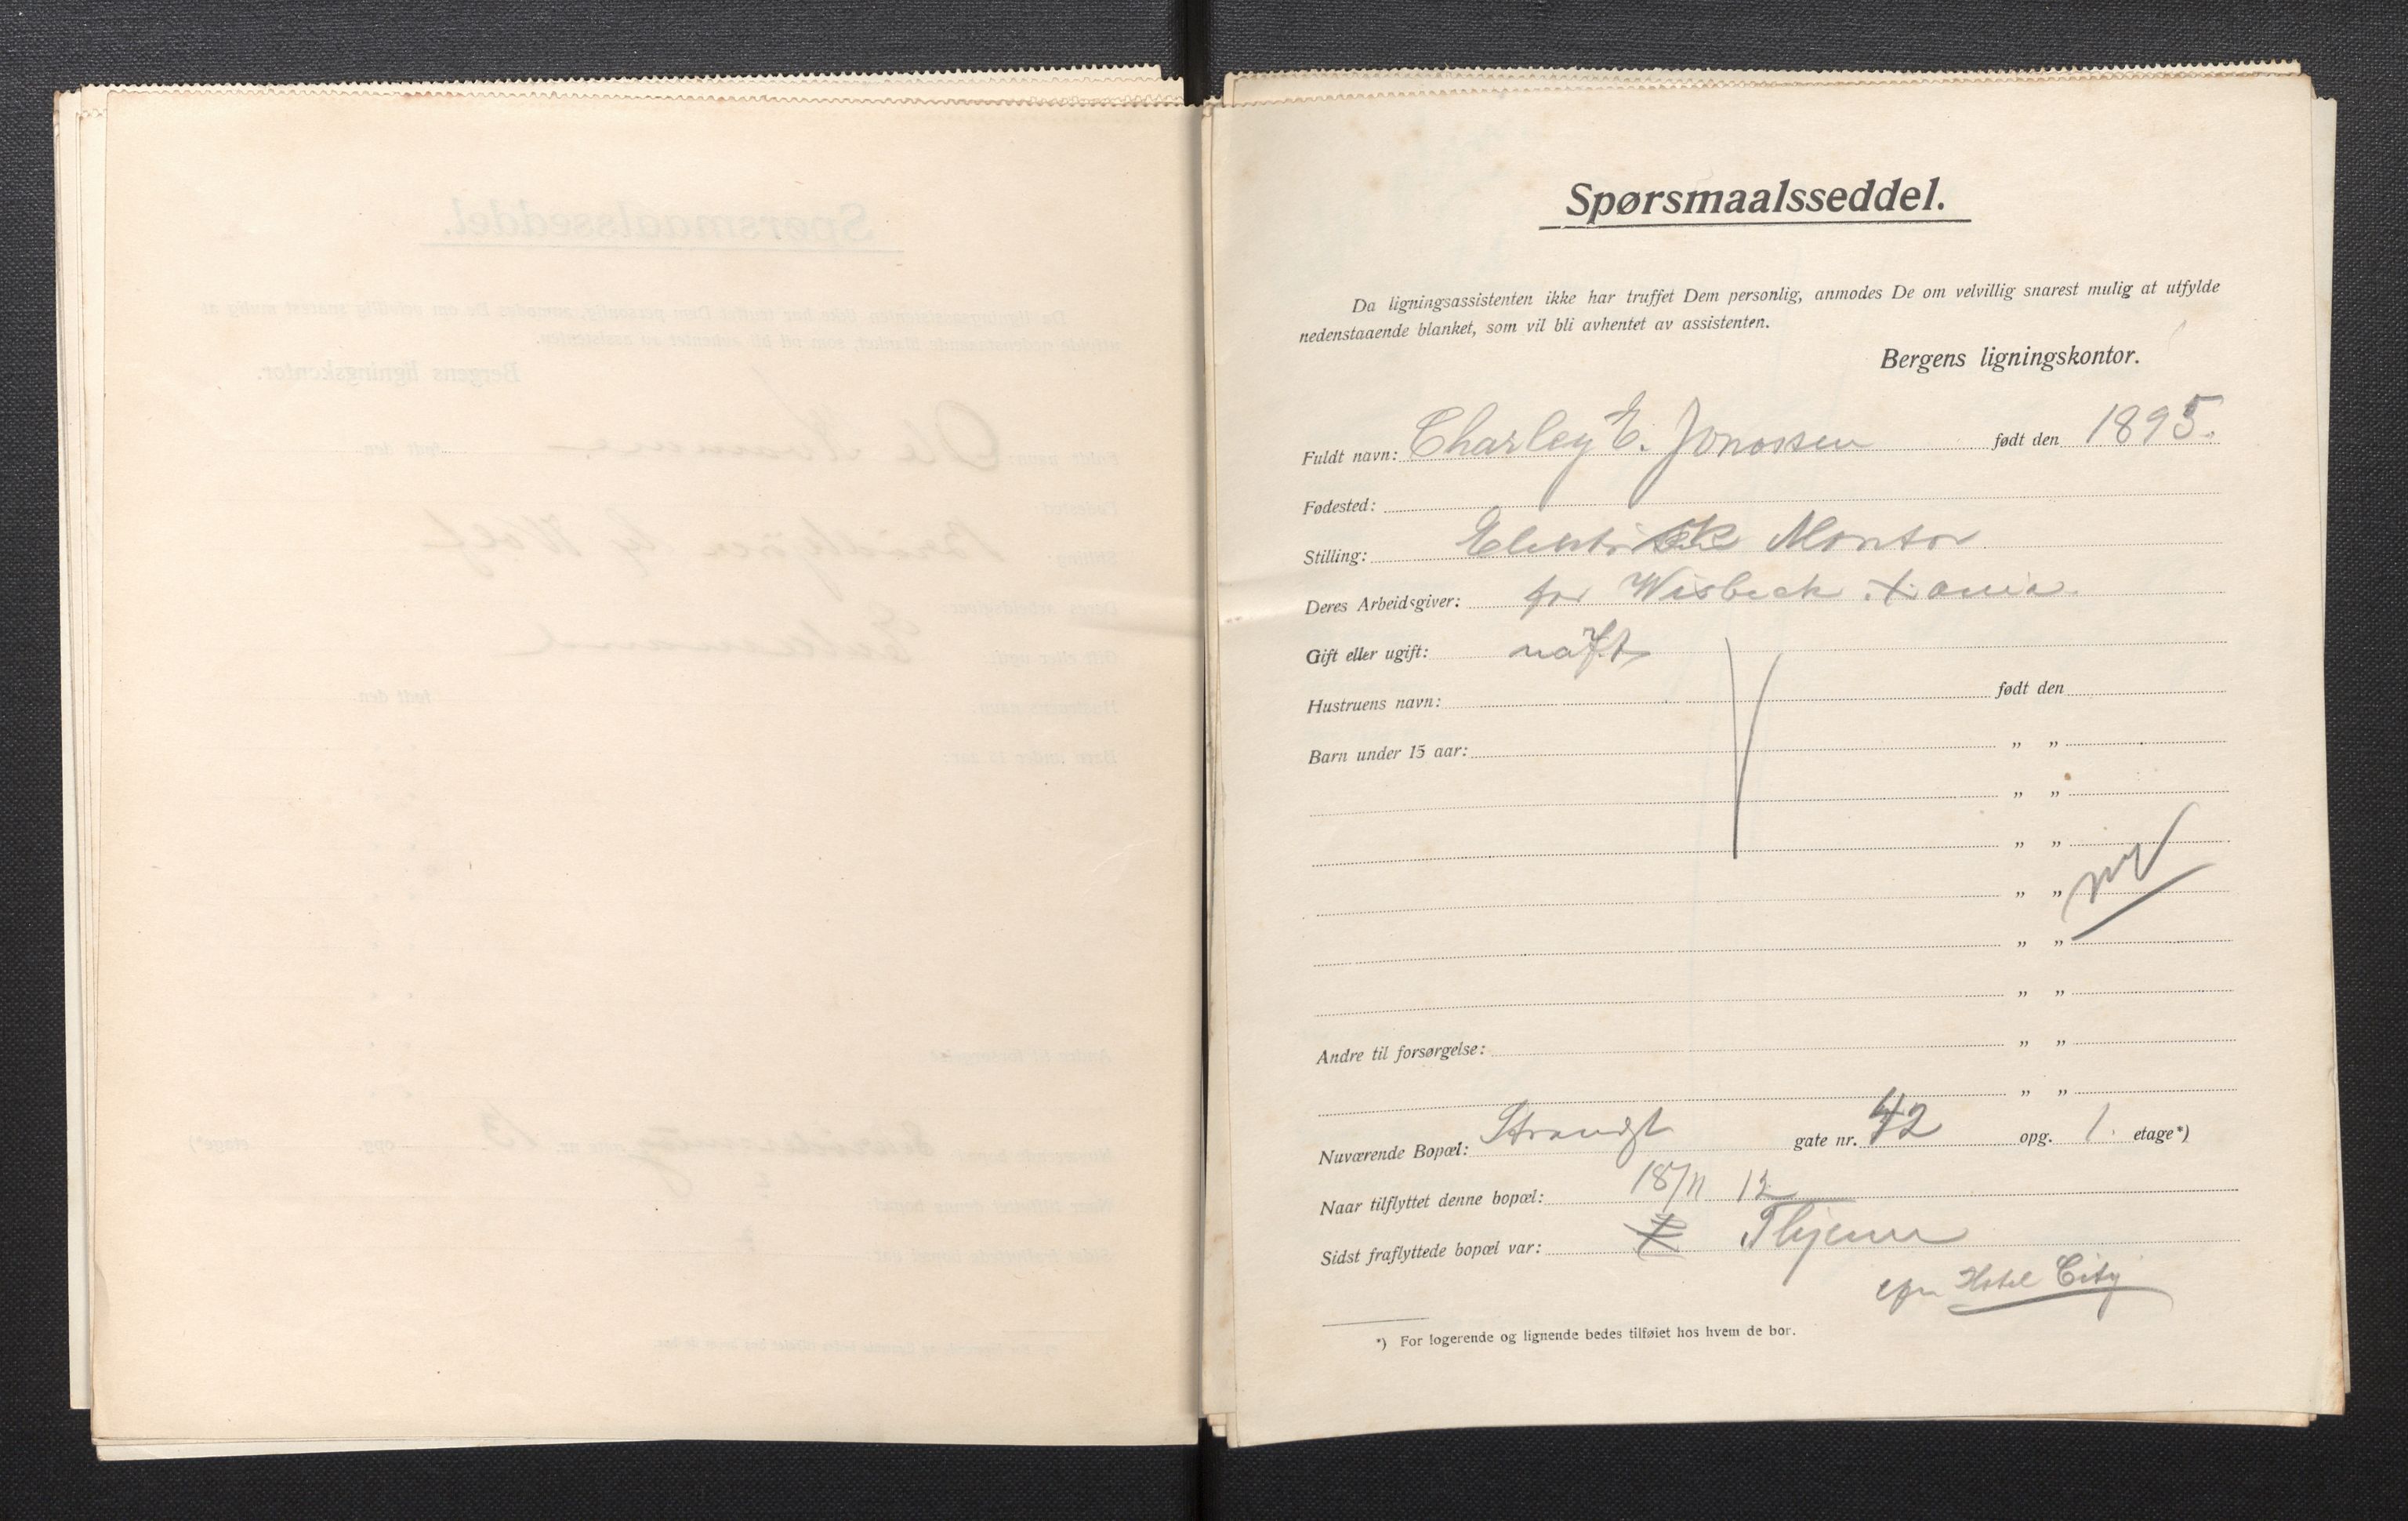 Spørsmaalsseddel.
Da ligningsassistenten ikke har truffet Dem personlig, anmodes De om velvillig snarest mulig at utfylde
nedenstaaende blanket, som vil bli avhentet av assistenten.
Bergens ligningskontor.
Fuldt navn: Charley E. Jonassen født den 1895.
Fødested:
Stilling: Elektrisk Montør
Deres Arbeidsgiver: for Wisbeck Xania.
Gift eller ugift:
Hustruens navn: født den
Barn under 15 aar: " "
" "
" "
" "
" "
" "
Andre til forsørgelse: " "
" "
Nuværende Bopæl: Strandgt gate nr. 42 opg. 1. etage*)
Naar tilflyttet denne bopæl: 18/11 12
Sidst fraflyttede bopæl var:
Hotel City
*) For logerende og lignende bedes tilføiet hos hvem de bor.